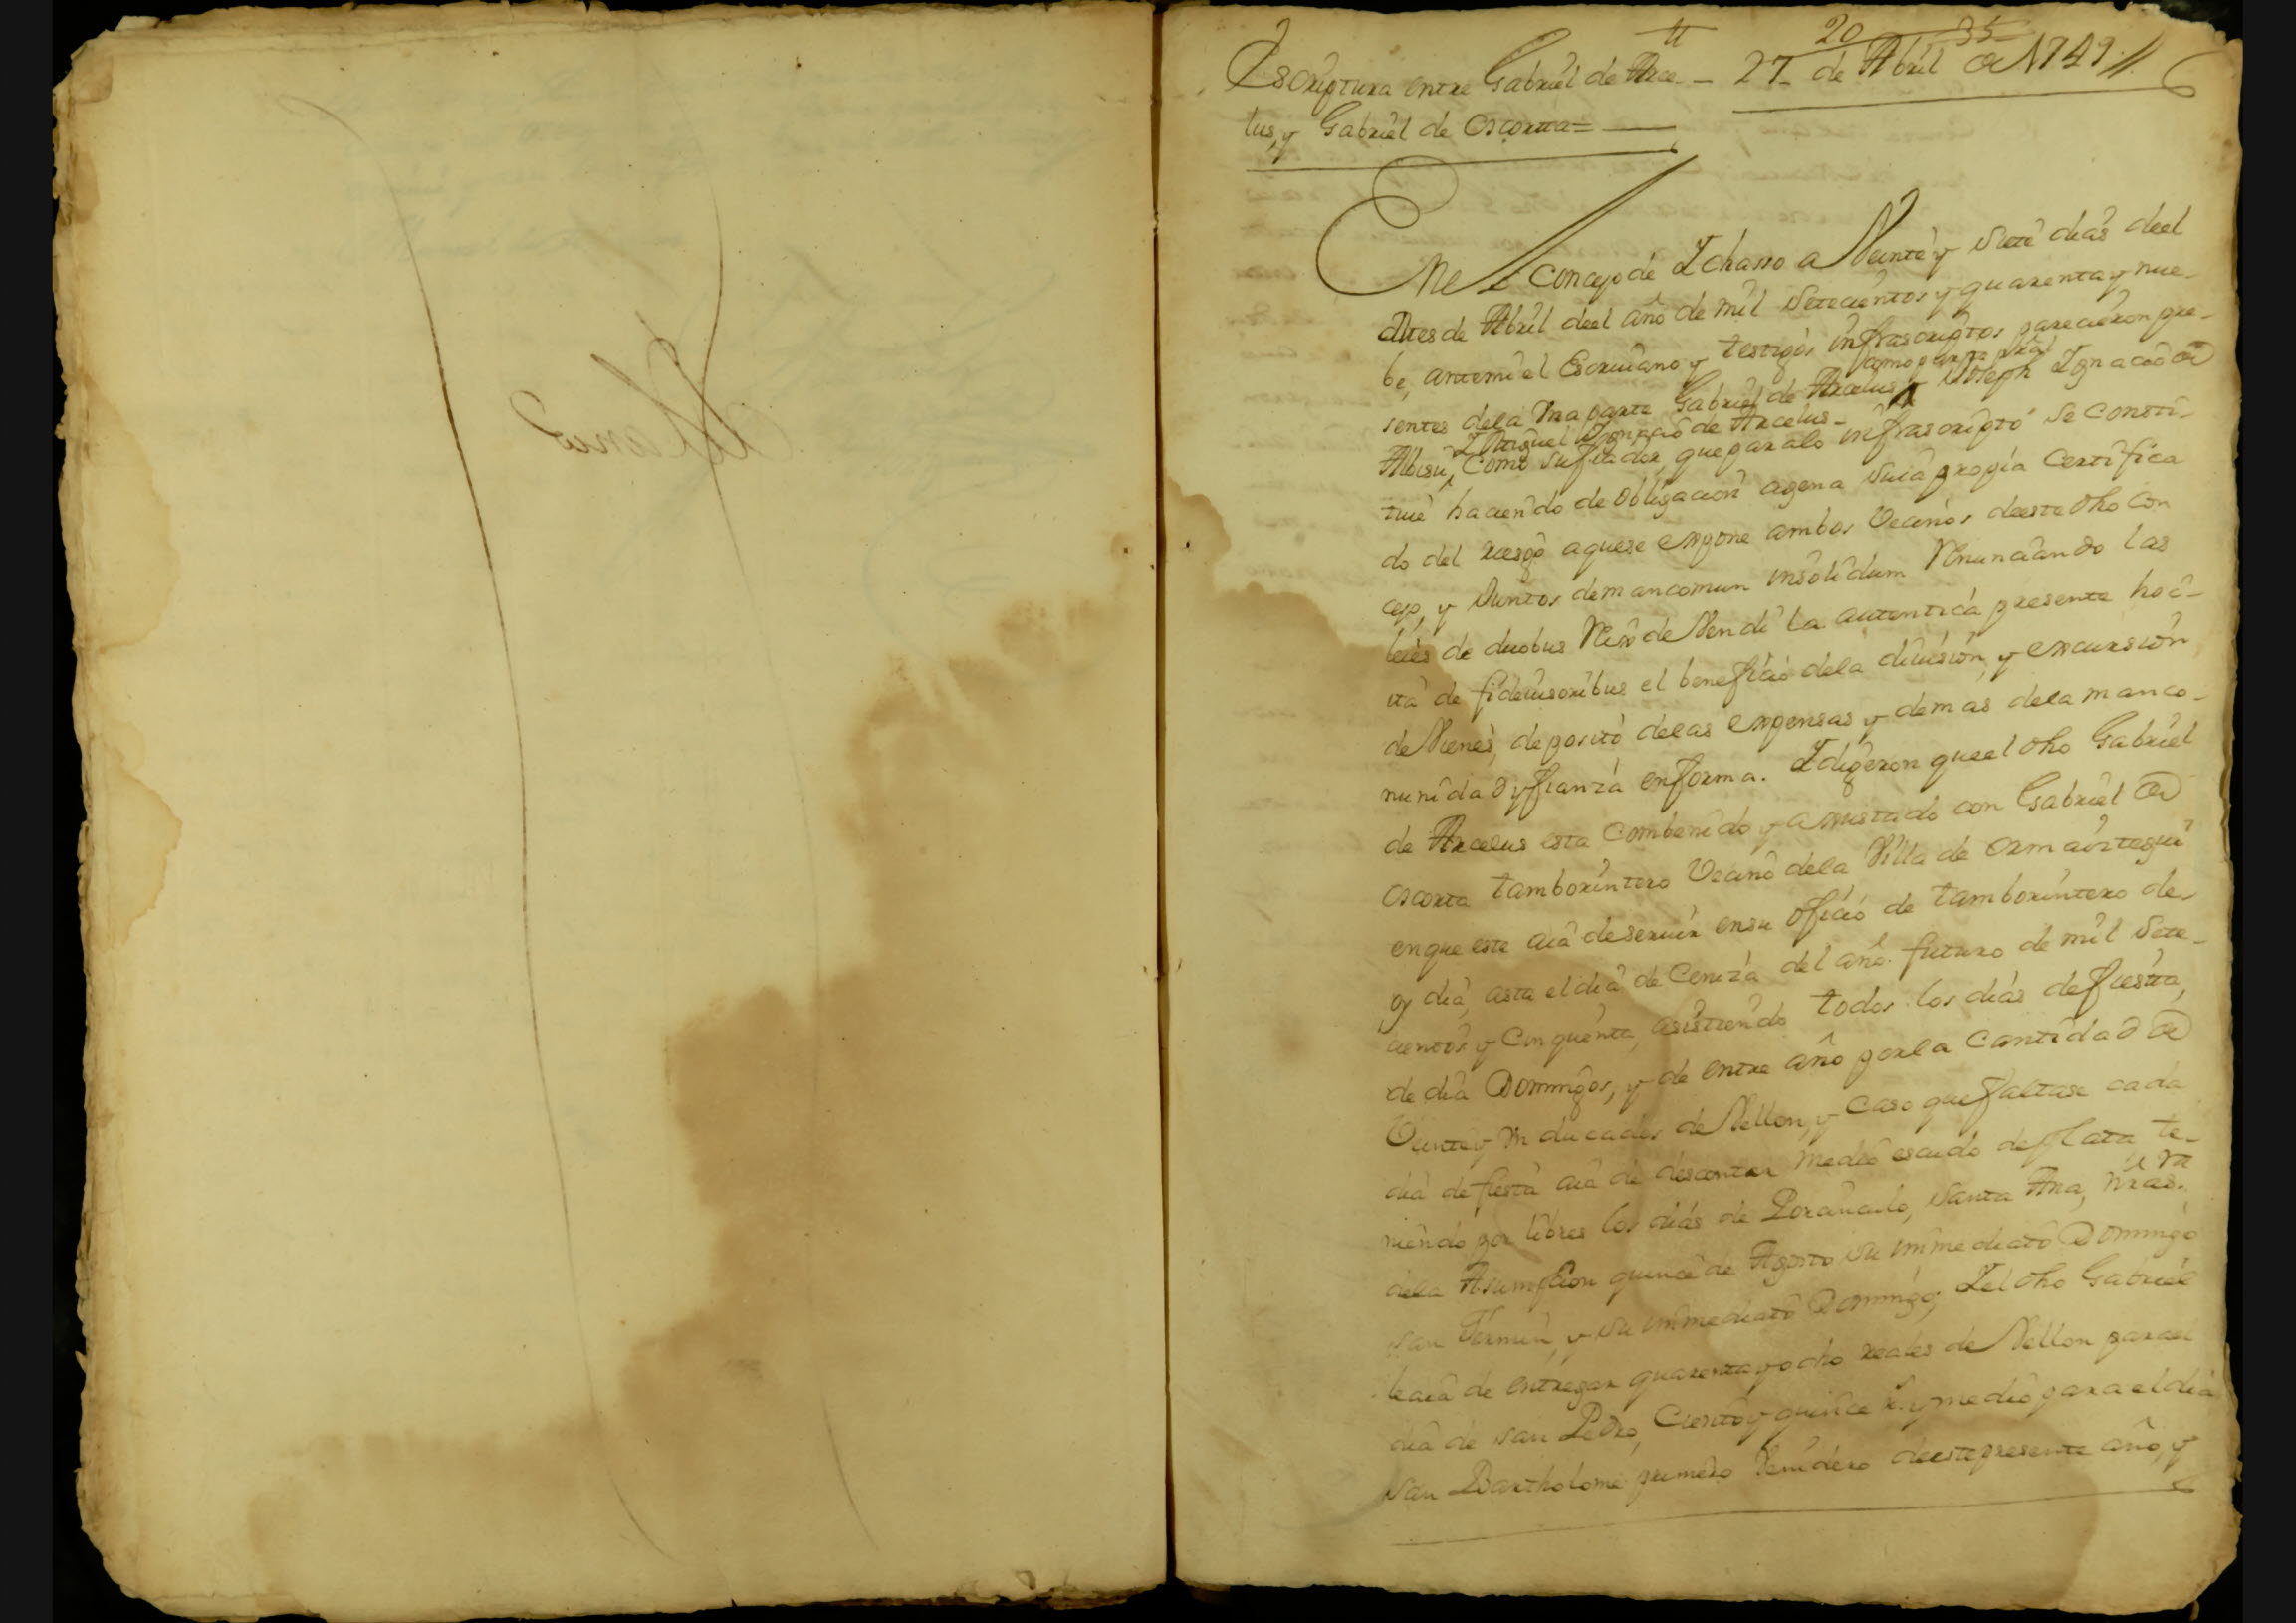 20 35
Escriptura entre Gabriel de Arce- 27 de Abril de 1749 //
lus, y Gabriel de Oscorta=
En el Concejo de Ichasso a Veinte y Siete dias deel
mes de Abril deel año de mil Setecientos y quarenta y nue-
be, antemi el Escriuano y testigos infrascriptos parecieron pre-
como parte pral
sentes dela Vna parte Gabriel de Arcelus y Joseph Ignacio de
I Miguel Ignacio de Arcelus-
Albisu, como su fiador, que para lo infrascripto se consti-
tuie haciendo de obligacion agena suia propia Certifica
do del riesgo aquese expone ambos Vecinos deeste dho Con
cejo, y Juntos demancomun insolidum Renunciando las
leies de duobus Reis de Vendi la autentica presente hoc-
ita de fideiusoribus el beneficio dela diuision, y excursion
de Vienes, deposito delas expensas y demas dela manco-
nunidad y fianza enforma. I digeron queel dho Gabriel
de Arcelus esta Combenido y ajustado con Gabriel de
Oscorta tamborintero Vecino dela Villa de Ormaiztegui
en que este aia deseruir ensu oficio de tamborintero de
oy dia, asta el dia de Ceniza del año futuro de mil Sete-
cientos y Cinquenta, asistiendo todos los dias de fiesta,
de dia Domingos, y de entre año porla Cantidad de
Veinte y Vn ducados de Vellon, y caso quefaltase cada
dia de fiesta aia de descontar medio escudo de plata te-
niendo por libres los dias de Santa Ana, nra Sra
dela Asumpcion quince de Agosto su immediato Domingo
san Fermin, y su immediato Domingo; I el dho Gabriel
leaia de entregar quarenta y ocho reales de Vellon parael
dia de san Pedro, Ciento y quince rs. y medio para el dia
san Bartholome primero Venidero deeste presente año, y